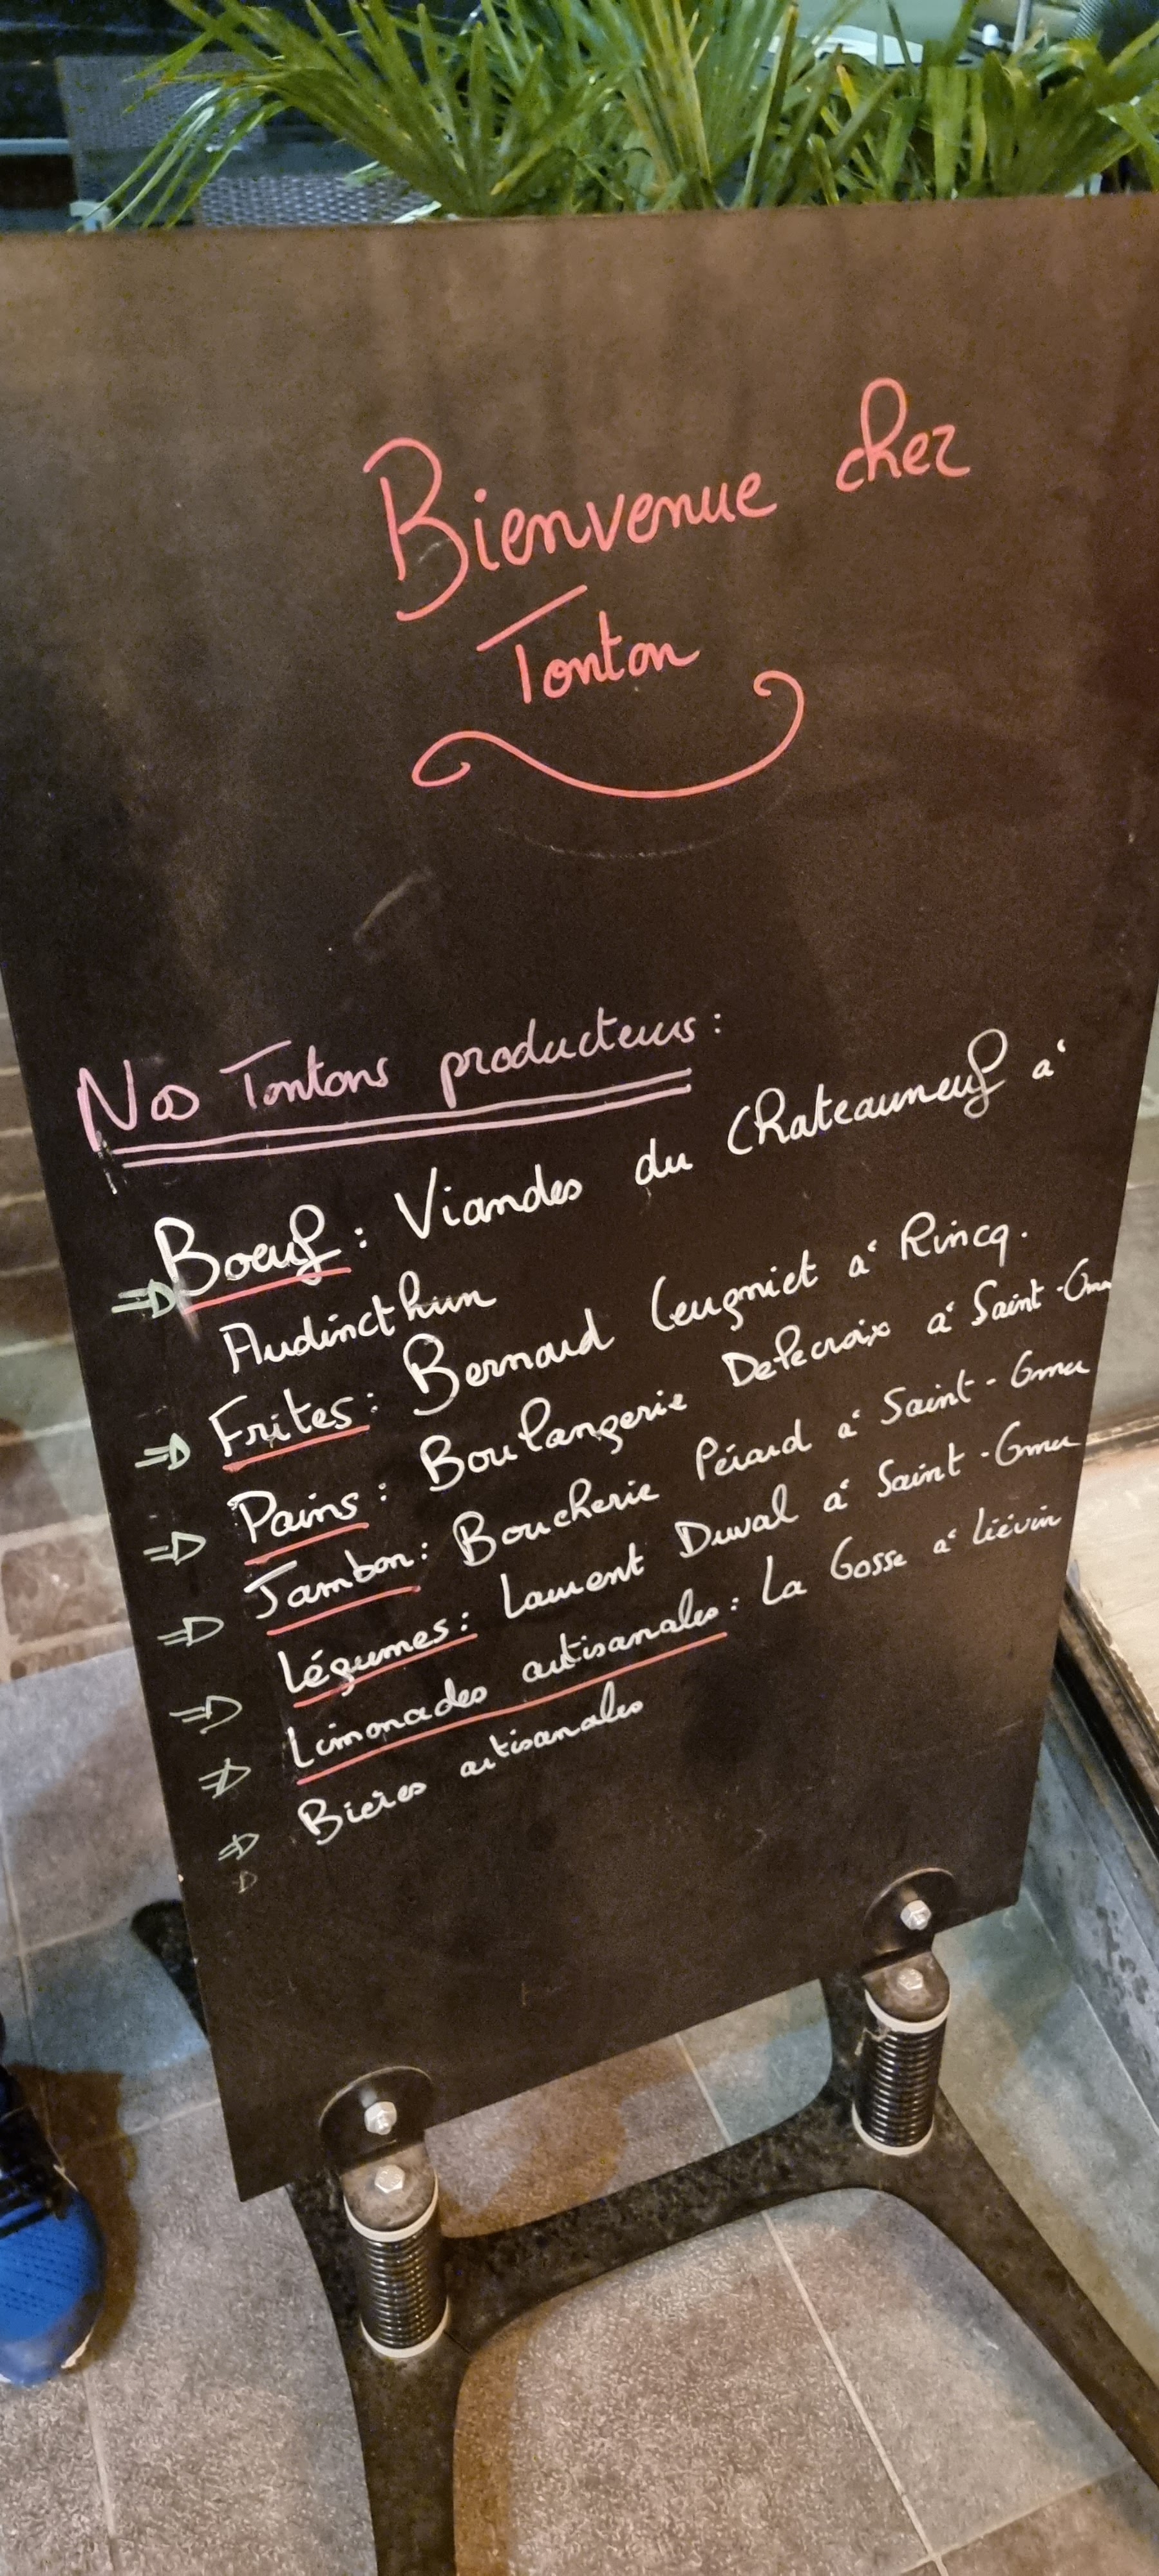 Bienvenue chez
Tonton
Nos Tontons producteurs :
Boeuf : Viandes du Chateauneuf à
Audincthun
Frites : Bernard Leugniet à Rincq.
Pains : Boulangerie Delecroix à Saint-Omer
Jambon : Boucherie Pérard à Saint-Omer
Légumes : Laurent Duval à Saint-Omer
Limonades artisanales : La Gosse à Liévin
Bières artisanales